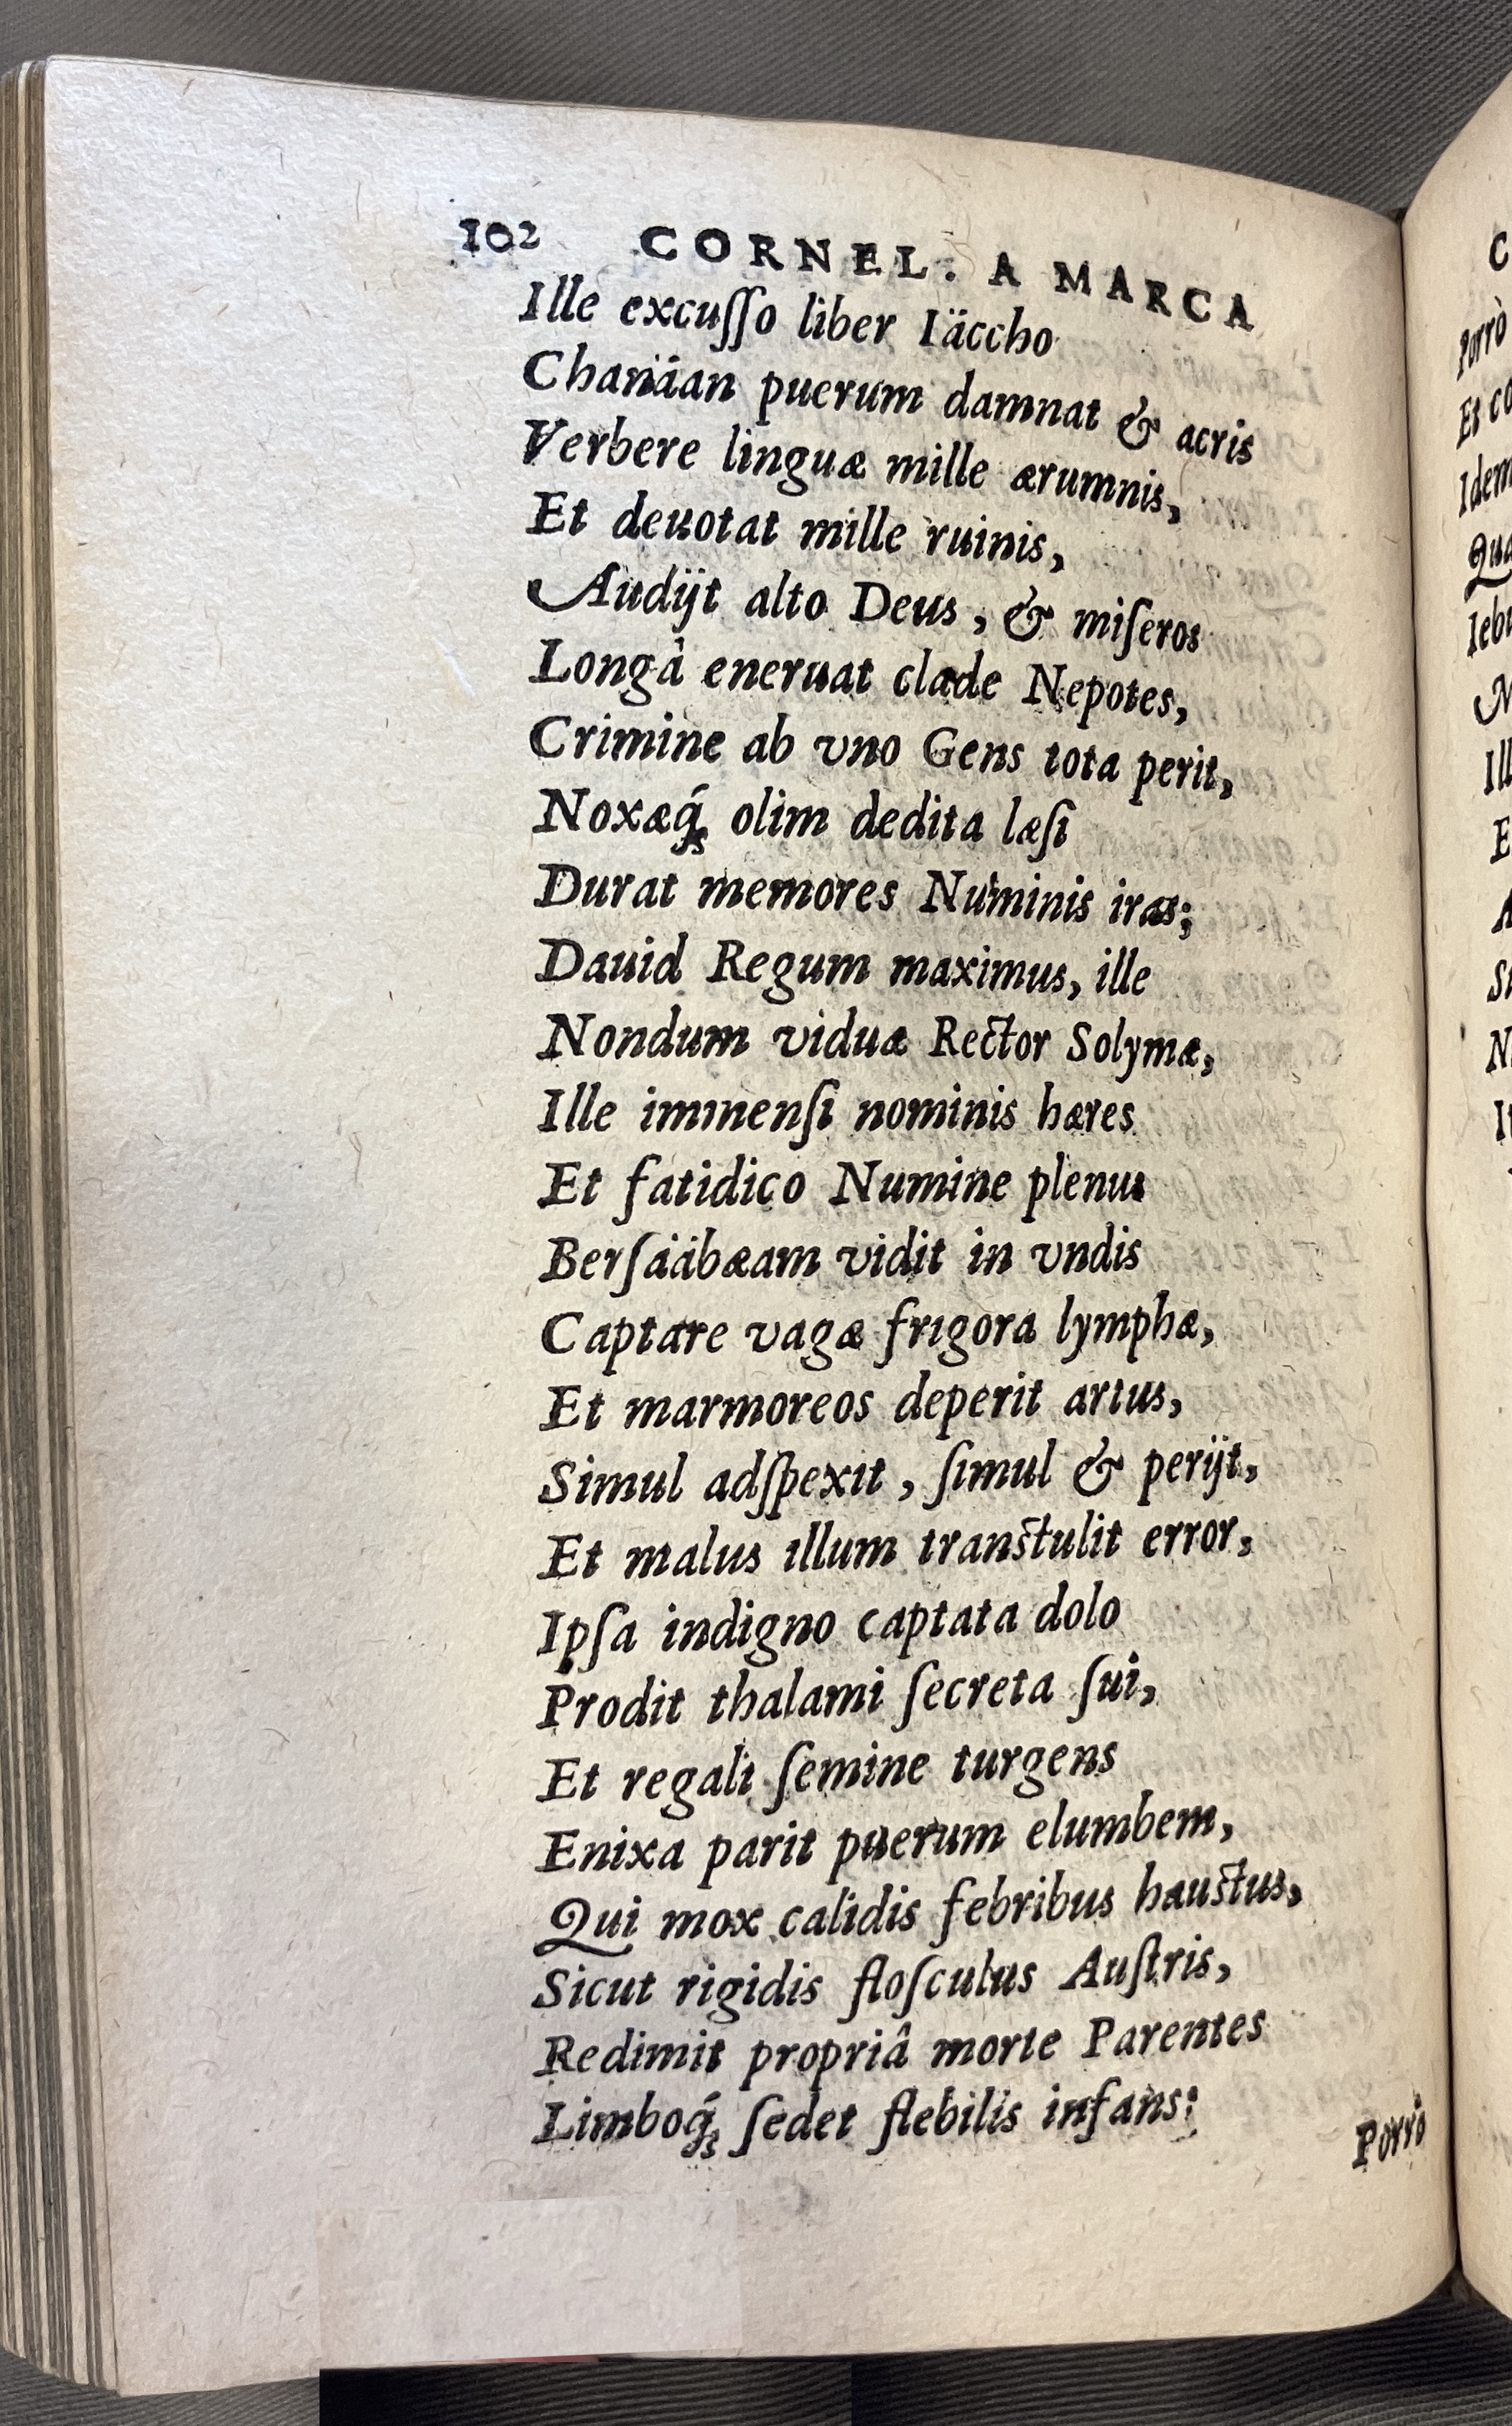 102 CORNEL. A MARCA
Ille excuſſo liber Iäccho
Chanäan puerum damnat & acris
Verbere linguæ mille ærumnis,
Et deuotat mille ruinis,
Audijt alto Deus, & miſeros
Longà eneruat clade Nepotes,
Crimine ab vno Gens tota perit,
Noxæq́; olim dedita læſi
Durat memores Numinis iras;
Dauid Regum maximus, ille
Nondum viduæ Rector Solymæ,
Ille immenſi nominis hæres
Et fatidico Numine plenus
Berſaäbæam vidit in vndis
Captare vagæ frigora lymphæ,
Et marmoreos deperit artus,
Simul adſpexit, ſimul & perijt,
Et malus illum tranſtulit error,
Ipſa indigno captata dolo
Prodit thalami ſecreta ſui,
Et regali ſemine turgens
Enixa parit puerum elumbem,
Qui mox calidis febribus hauſtus,
Sicut rigidis floſculus Auſtris,
Redimit propriâ morte Parentes
Limboq́; ſedet flebilis infans:
Porrò
C
Porrò
Et co
Idem
Qua
Iebu
Ill